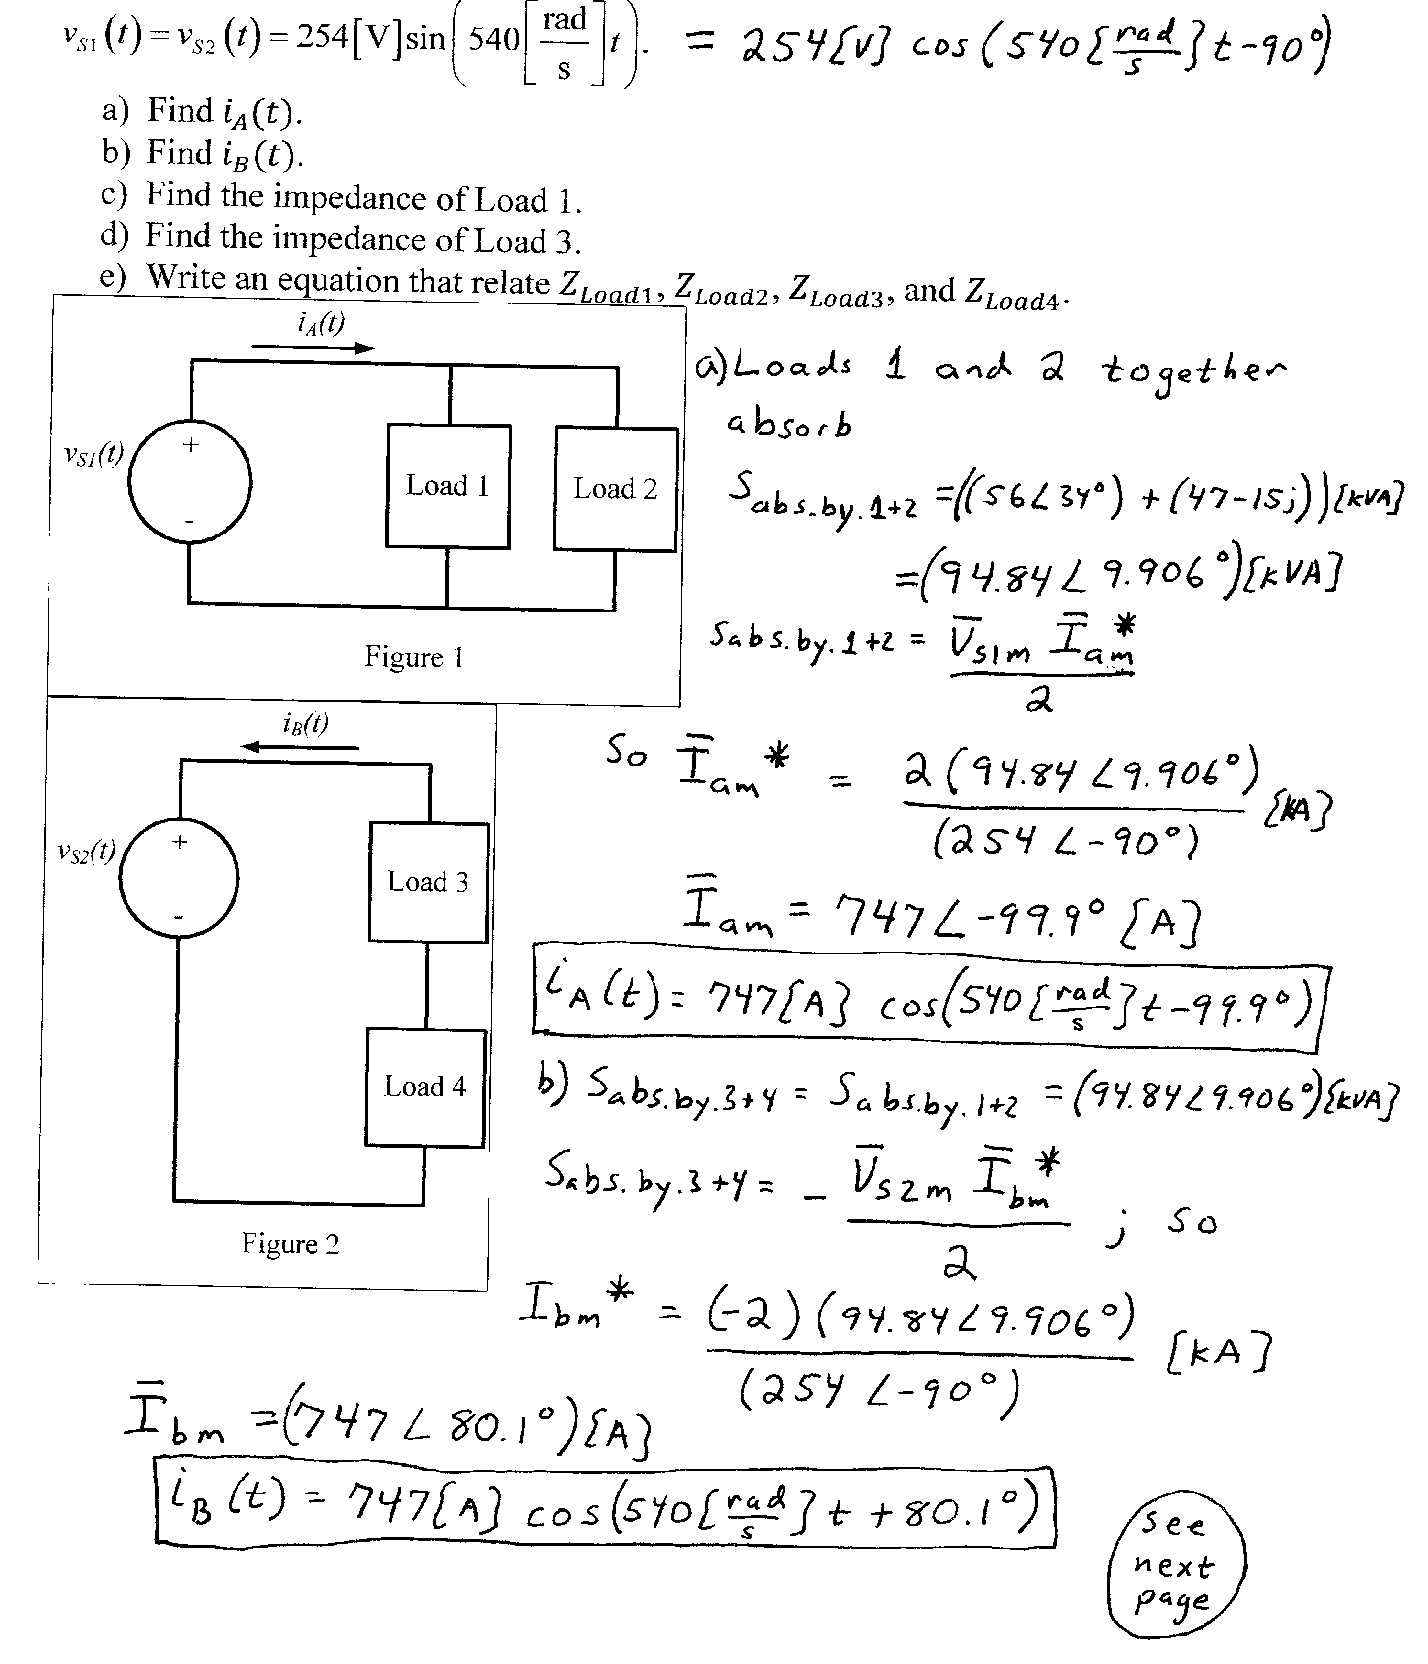 v_S1 (t) = v_S2 (t) = 254[V]sin(540[rad/s]t). = 254[V] cos(540[rad/s]t-90°)
a) Find i_A(t).
b) Find i_B(t).
c) Find the impedance of Load 1.
d) Find the impedance of Load 3.
e) Write an equation that relate Z_Load1, Z_Load2, Z_Load3, and Z_Load4.
i_A(t)
v_S1(t)
+
-
Load 1
Load 2
Figure 1
a) Loads 1 and 2 together
absorb
S_abs.by.1+2 = ((56∠34°) + (47-15j))[kVA]
=(94.84∠9.906°)[kVA]
S_abs.by.1+2 = V̅_S1m I̅_am* / 2
So I̅_am* = 2(94.84∠9.906°) / (254∠-90°) [kA]
I̅_am = 747∠-99.9° [A]
i_A(t) = 747[A] cos(540[rad/s]t-99.9°)
i_B(t)
v_S2(t)
+
-
Load 3
Load 4
Figure 2
b) S_abs.by.3+4 = S_abs.by.1+2 = (94.84∠9.906°)[kVA]
S_abs.by.3+4 = - V̅_S2m I̅_bm* / 2 ; so
I_bm* = (-2)(94.84∠9.906°) / (254∠-90°) [kA]
I̅_bm =(747∠80.1°)[A]
i_B(t) = 747[A] cos(540[rad/s]t +80.1°)
see
next
page